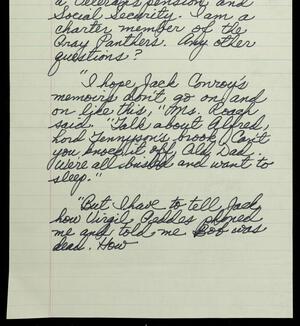 a veteran's pension, and
Social Security. I am a
charter member of the
Gray Panthers. Any other
questions?
"I hope Jack Conroy's
memoirs don't go on and
on like this," Mrs. Coach
said. "Talk about Alfred,
Lord Tennyson's brook! Can't
you knock it off, Old Dad,
We're all bushed and want to
sleep."
"But I have to tell Jack
how Virgil Geddes phoned
me and told me Bob was
dead. How